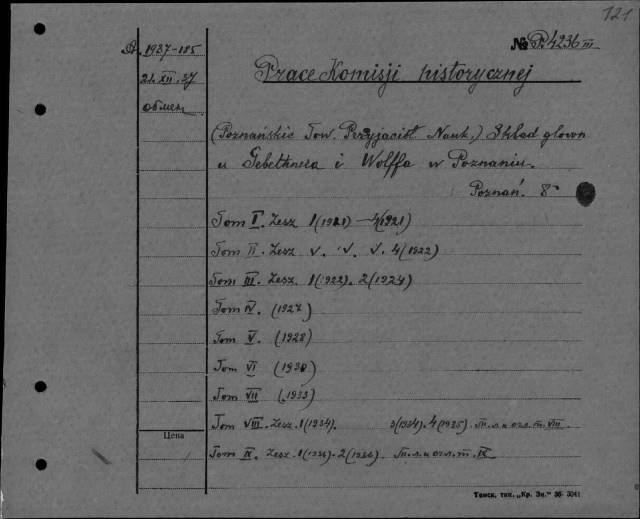 121
№ P. 4236 III
1937-185
21. XII. 37
обмен
Prace Komisji historycznej
(Poznańskie Tow. Przyjaciół Nauk.) Skład głown
u Gebethnera i Wolffa w Poznaniu.
Poznań. 8°
Tom I. Zesz 1(1921)-4(1921)
Tom II. Zesz v. v. v. 4(1922)
Tom III. Zesz. 1(1922). 2(1924)
Tom IV. (1927)
Tom V. (1928)
Tom VI (1930)
Tom VII (1933)
Tom VIII. Zesz. 1(1934). 3(1934). 4(1935). т.л. и огл. т. VIII.
Цена
Tom IX. Zesz. 1(1936). 2(1936). т.л. и огл. т. IX
Томск, тип. „Кр. Зн." 36- 3041